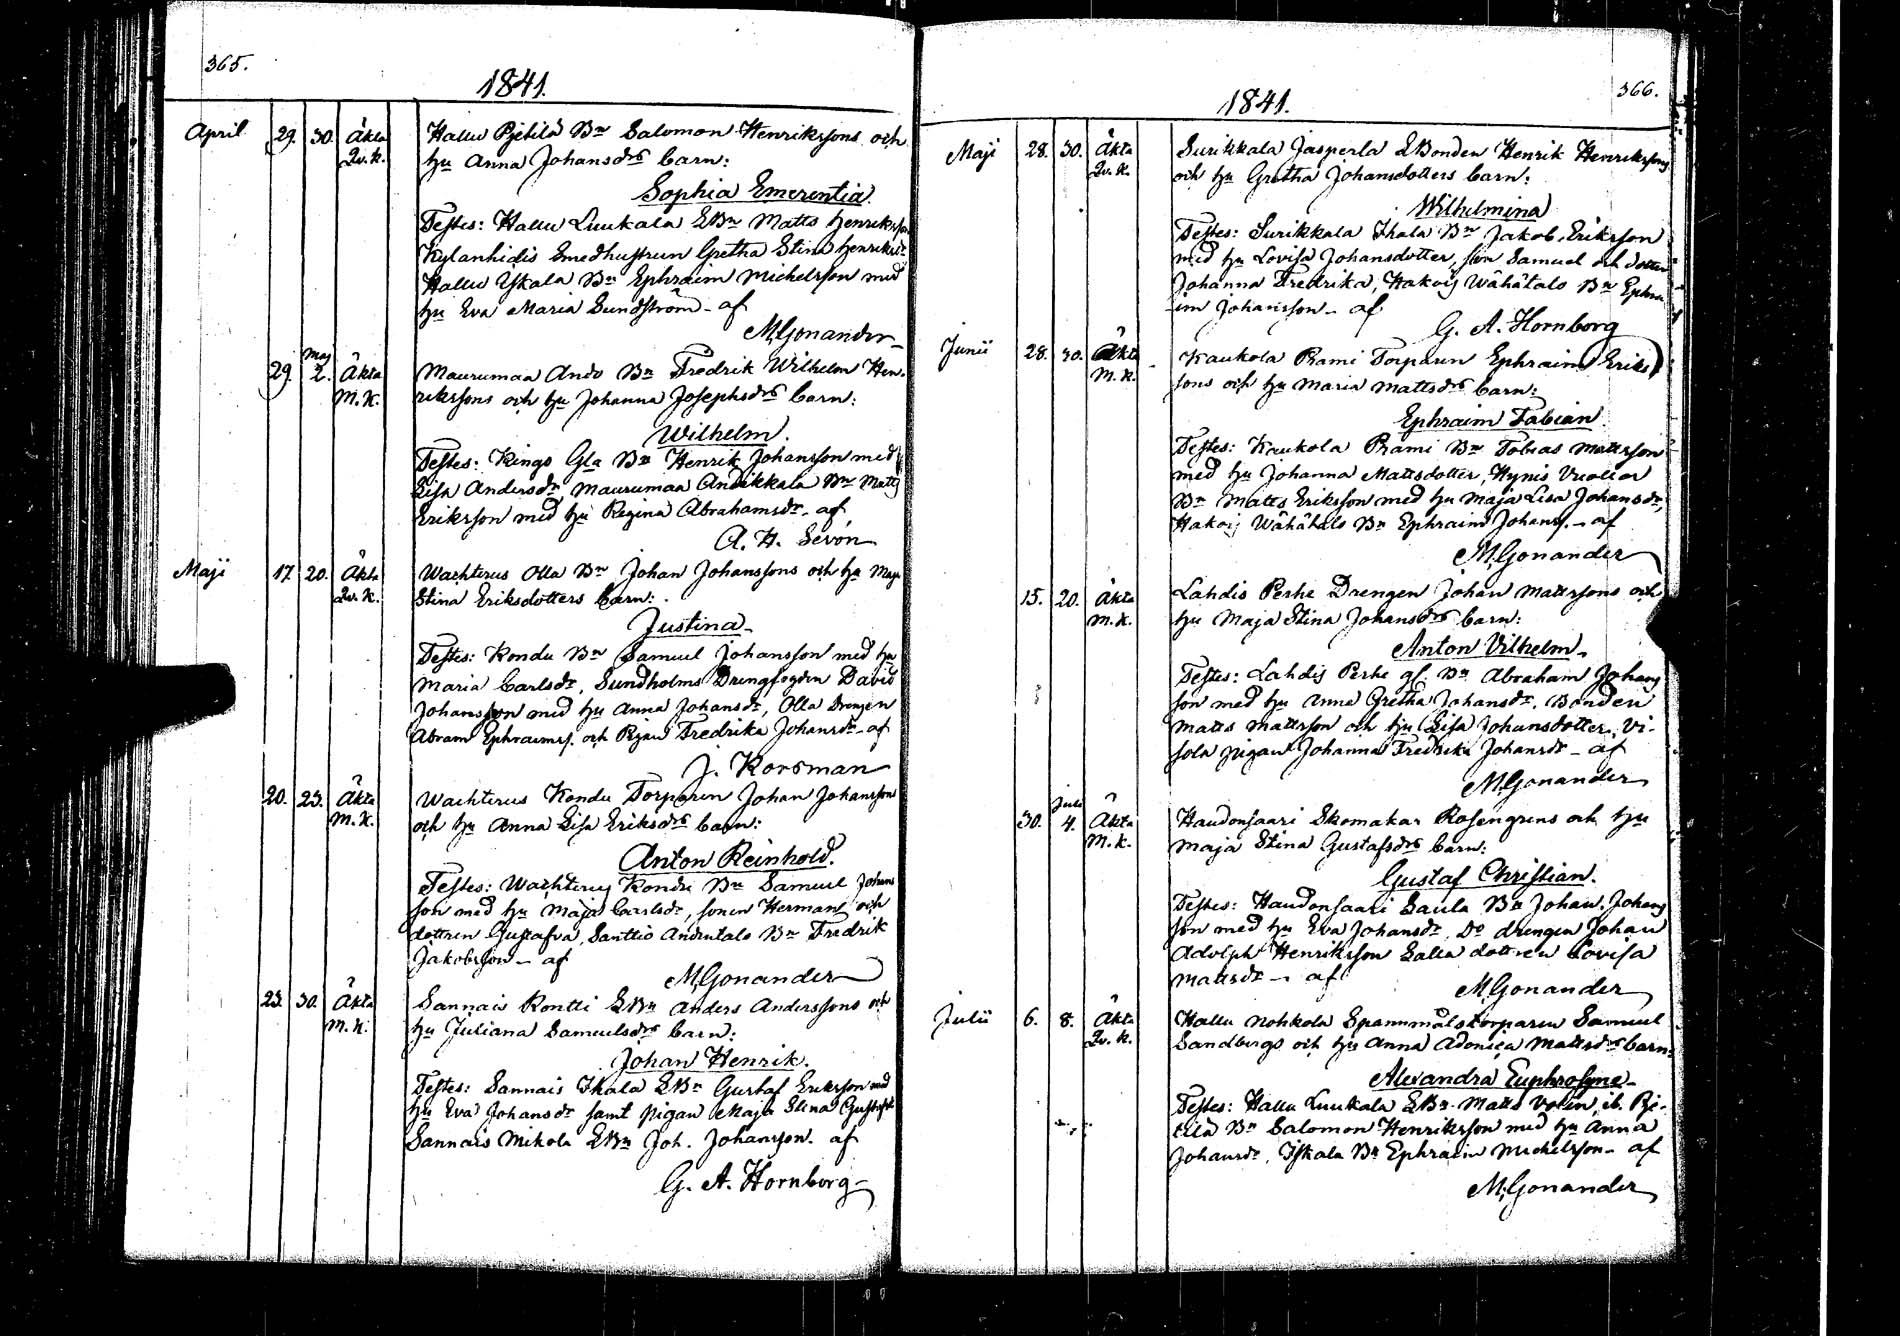 365.
1841.
April 29. 30. Äkta Hallu Pjetilä Bn Salomon Henrikssons och
Qv. K. hu Anna Johansdrs barn:
Sophia Emerentia
Testes: Hallu Luukala LBn Matts Henriksson
Kylänhidis Smedhustrun Gretha Stina Henriksdr
Hallu Yskala Bn Ephraim Michelsson med
hu Eva Maria Sundström - af
M. Gonander
29. Maj 2. Äkta Maurumaa Ando Bn Fredrik Wilhelm Hen-
M. K. rikssons och hu Johanna Josephsdrs barn:
Wilhelm.
Testes: Kings Gla Bn Henrik Johansson med
Lisa Andersdr, Maurumaa Andikkala Bn Matts
Eriksson med hu Regina Abrahamsdr - af
A. H. Sevón
Maji 17. 20. Äkta Wachterus Olla Bn Johan Johanssons och hu Maja
Qv. K. Stina Eriksdotters barn:
Justina -
Testes: Kondu Bn Samuel Johansson med hu
Maria Carlsdr, Sundholms Drengfogden David
Johansson med hu Anna Johansdr, Olla Drengen
Abram Ephraimss. och Pigan Fredrika Johansdr - af
J. Korsman
20. 23. Äkta Wachterus Kondu Torparen Johan Johanssons
M. K. och hu Anna Lisa Eriksdrs barn:
Anton Reinhold.
Testes: Wachterus Kondu Bn Samuel Johans
son med hu Maja Carlsdr, sonen Herman och
dottren Gustafva, Santtio Andintalo Bn Fredrik
Jakobsson - af
M. Gonander
23. 30. Äkta Sannais Rontti LBn Anders Anderssons och
M. K. hu Juliana Samuelsdrs barn:
Johan Henrik.
Testes: Sannais Ihala LBn Gustaf Eriksson med
hu Eva Johansdr samt pigan Maja Stina Gustafsdr
Sannais Mikola LBn Joh. Johansson. af
G. A. Hornborg -
366.
1841.
Maji 28. 30. Äkta Surikkala Jasperla LBonden Henrik Henrikssons
Qv. K. och hu Gretha Johansdotters barn:
Wilhelmina
Testes: Surikkala Ihala Bn Jakob Eriksson
med hu Lovisa Johansdotter, son Samuel och dotter
Johanna Fredrika, Hakois Wähätalo Bn Ephra
im Johansson - af
G. A. Hornborg
Junii 28. 30. Äkta Kaukola Prami Torparen Ephraim Eriks
M. K. sons och hu Maria Mattsdrs barn:
Ephraim Fabian
Testes: Kaukola Prami Bn Tobias Mattsson
med hu Johanna Mattsdotter, Hynis Vuolior
Bn Matts Eriksson med hu Maja Lisa Johansdr,
Hakois Wähätalo Bn Ephraim Johanss. - af
M. Gonander
15. 20. Äkta Lahdis Perhe Drengen Johan Mattssons och
M. K. hu Maja Stina Johansdrs barn:
Anton Vilhelm -
Testes: Lahdis Perhe gl. Bn Abraham Johans
son med hu Anna Gretha Johansdr, Bonden
Matts Mattsson och hu Lisa Johansdotter, Vi-
sola pigan Johanna Fredrika Johansdr - af
M. Gonander
30. Juli 4. Äkta Haudonsaari Skomakar Rosengrens och hu
M. K. Maja Stina Gustafsdrs barn:
Gustaf Christian.
Testes: Haudonsaari Saula Bn Johan Johans
son med hu Eva Johansdr, Do drengen Johan
Adolph Henriksson Lalla dottren Lovisa
Mattsdr - af
M. Gonander
Julii 6. 8. Äkta Hallu Nohkola Spannmålstorparen Samuel
Qv. K. Sandbergs och hu Anna Adonica Mattsdrs barn:
Alexandra Euphrosyne -
Testes: Hallu Luukala LBn Matts Volin, ib. Pje-
tilä Bn Salomon Henriksson med hu Anna
Johansdr, Iskala Bn Ephraim Michelsson - af
M. Gonander